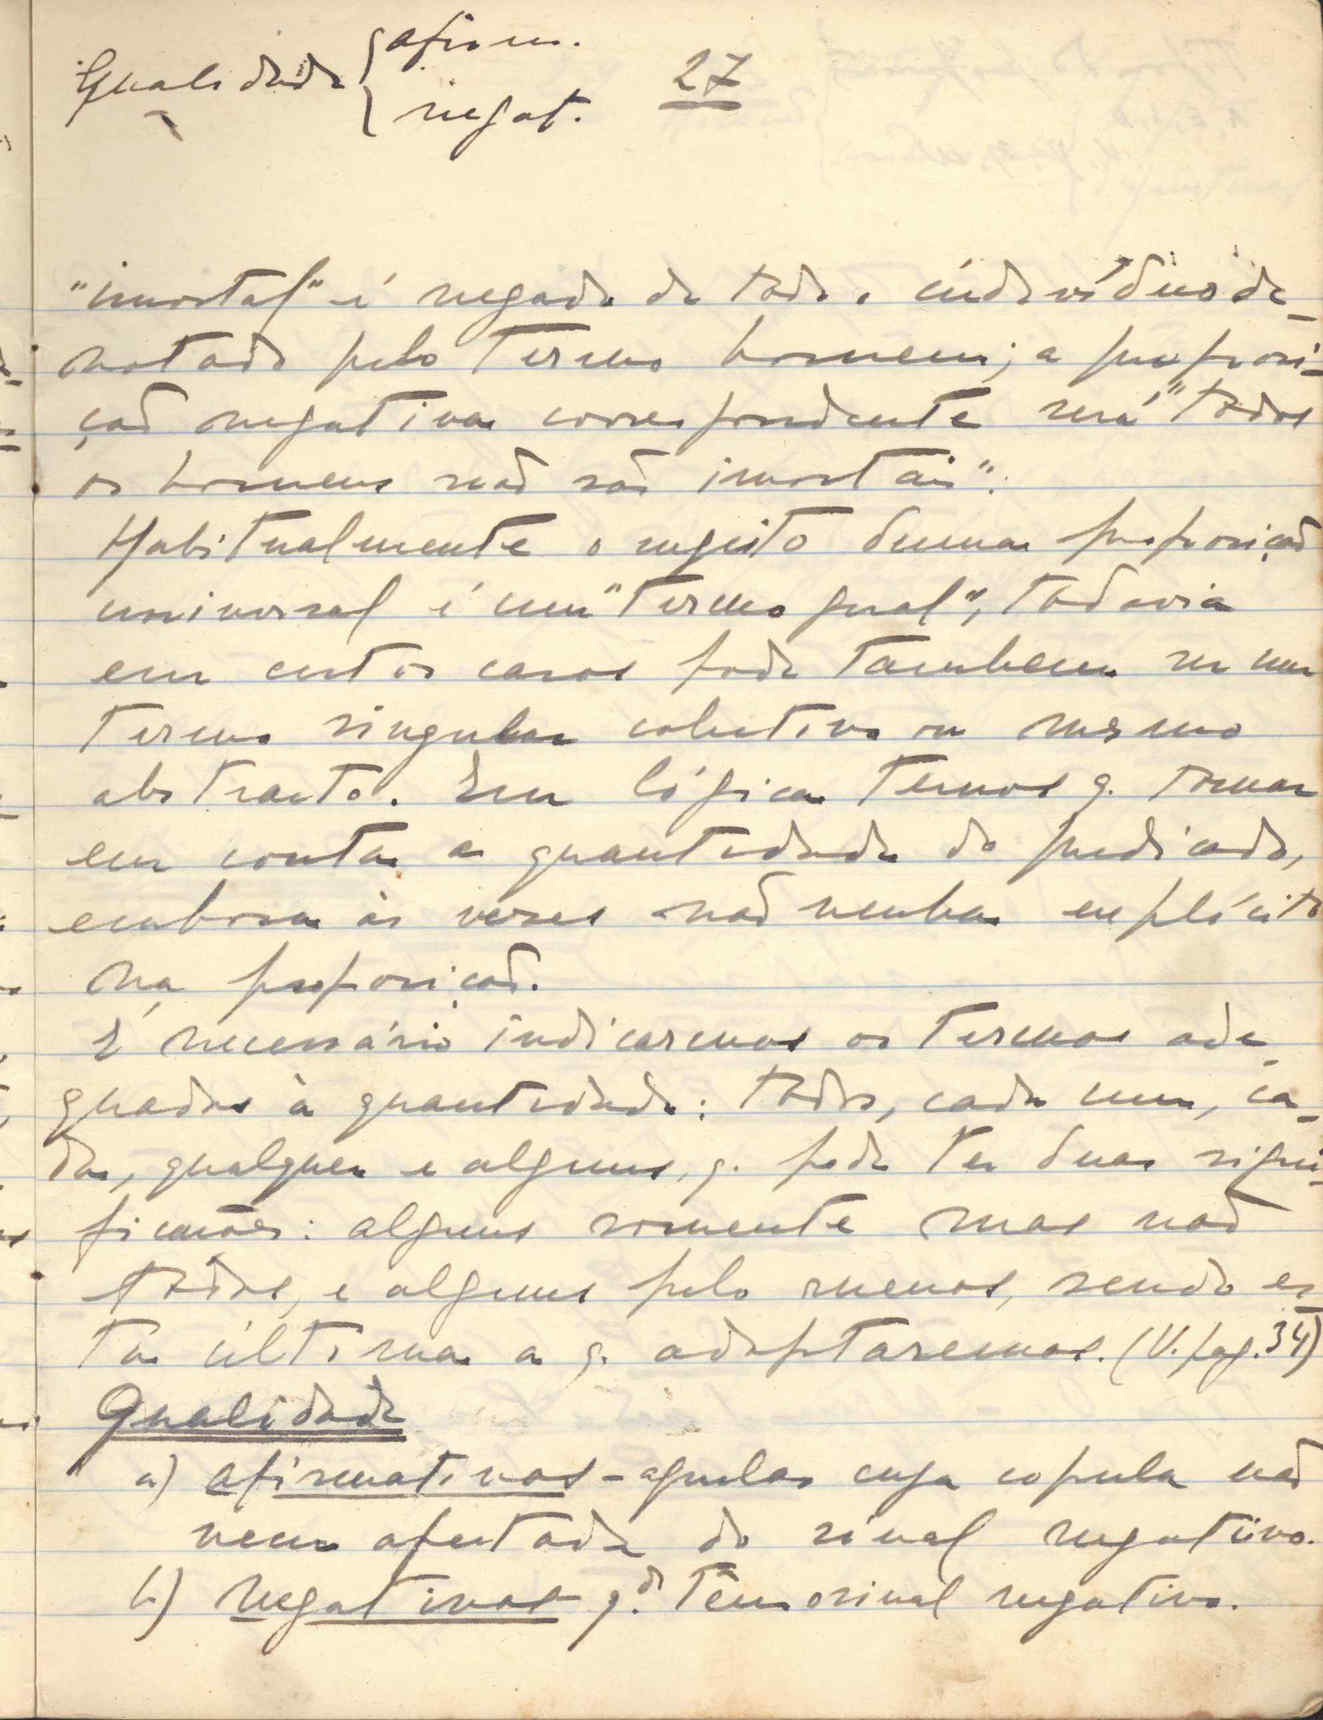 Qualidade { afirm.
negat.
27
"imortal" é negado de todo o indivíduo de-
notado pelo termo homem; a proposi-
ção negativa correspondente será "todos
os homens não são imortais".
Habitualmente o sujeito duma proposição
universal é um "termo geral", todavia
em certos casos pode tambem ser um
termo singular colectivo ou mesmo
abstracto. Em lógica temos q. tomar
em conta a quantidade do predicado,
embora às vezes não venha explícito
na proposição.
É necessário indicarmos os termos ade
quados à quantidade: todos, cada um, ca-
da, qualquer e alguns, q. pode ter duas signi-
ficações: alguns somente mas não
todos, e alguns pelo menos, sendo es-
ta última a q. adoptaremos. (V. pag. 34)
Qualidade
a) afirmativas - aquelas cuja copula não
vem afectada do sinal negativo.
b) negativas qdo. têm o sinal negativo.